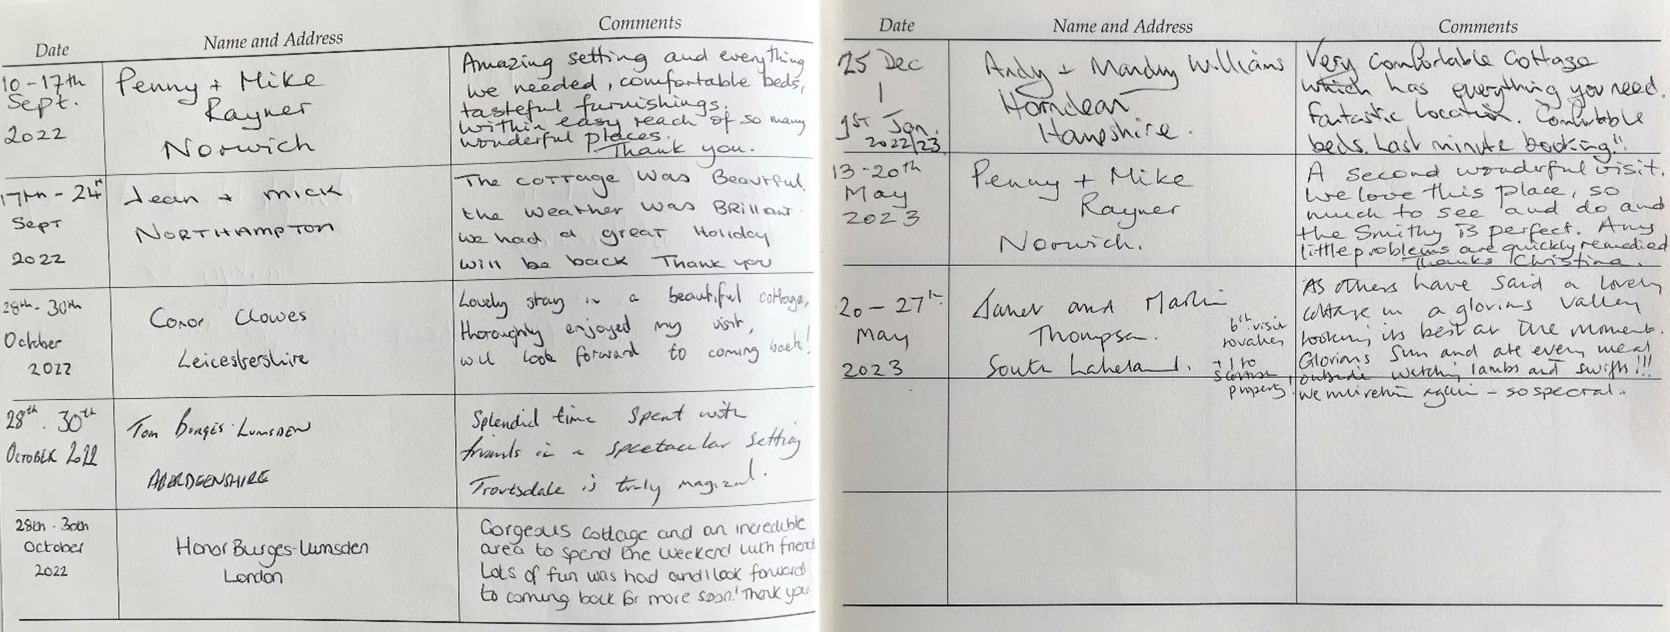 Date
Name and Address
Comments
10-17th
Sept.
2022
Penny + Mike
Rayner
Norwich
Amazing setting and everything
we needed, comfortable beds,
tasteful furnishings.
Within easy reach of so many
wonderful places.
Thank you.
17th - 24th
Sept
2022
Jean + Mick
NORTHAMPTON
The cottage was Beautiful.
the weather was BRilliant.
we had a great Holiday
will be back Thank you
28th - 30th
October
2022
Conor Clowes
Leicestershire
Lovely stay in a beautiful cottage,
thoroughly enjoyed my visit,
will look forward to coming back!
28th . 30th
OCTOBER 2022
Tom Burges-Lumsden
ABERDEENSHIRE
Splendid time spent with
friends in a spectacular setting
Troutsdale is truly magical.
28th - 30th
October
2022
Honor Burges-Lumsden
London
Gorgeous cottage and an incredible
area to spend the weekend with friend
Lots of fun was had and I look forward
to coming back for more soon! Thank you
Date
Name and Address
Comments
25 Dec
|
1st Jan.
2022/23
Andy + Mandy Williams
Horndean
Hampshire.
Very Comfortable Cottage
which has everything you need.
Fantastic Location. Comfortable
beds. Last minute booking!!
13-20th
May
2023
Penny + Mike
Rayner
Norwich.
A second wonderful visit.
We love this place, so
much to see and do and
the Smithy is perfect. Any
little problems are quickly remedied
Thanks Christina.
20 - 27th
May
2023
Janet and Martin
Thompson.
South Lakeland.
6th visit
to valley
+ 1 to
property!
As others have said a lovely
cottage in a glorious valley
looking its best at the moment.
Glorious sun and ate every meal
outside watching lambs and swifts!!!
We must return again - so special.